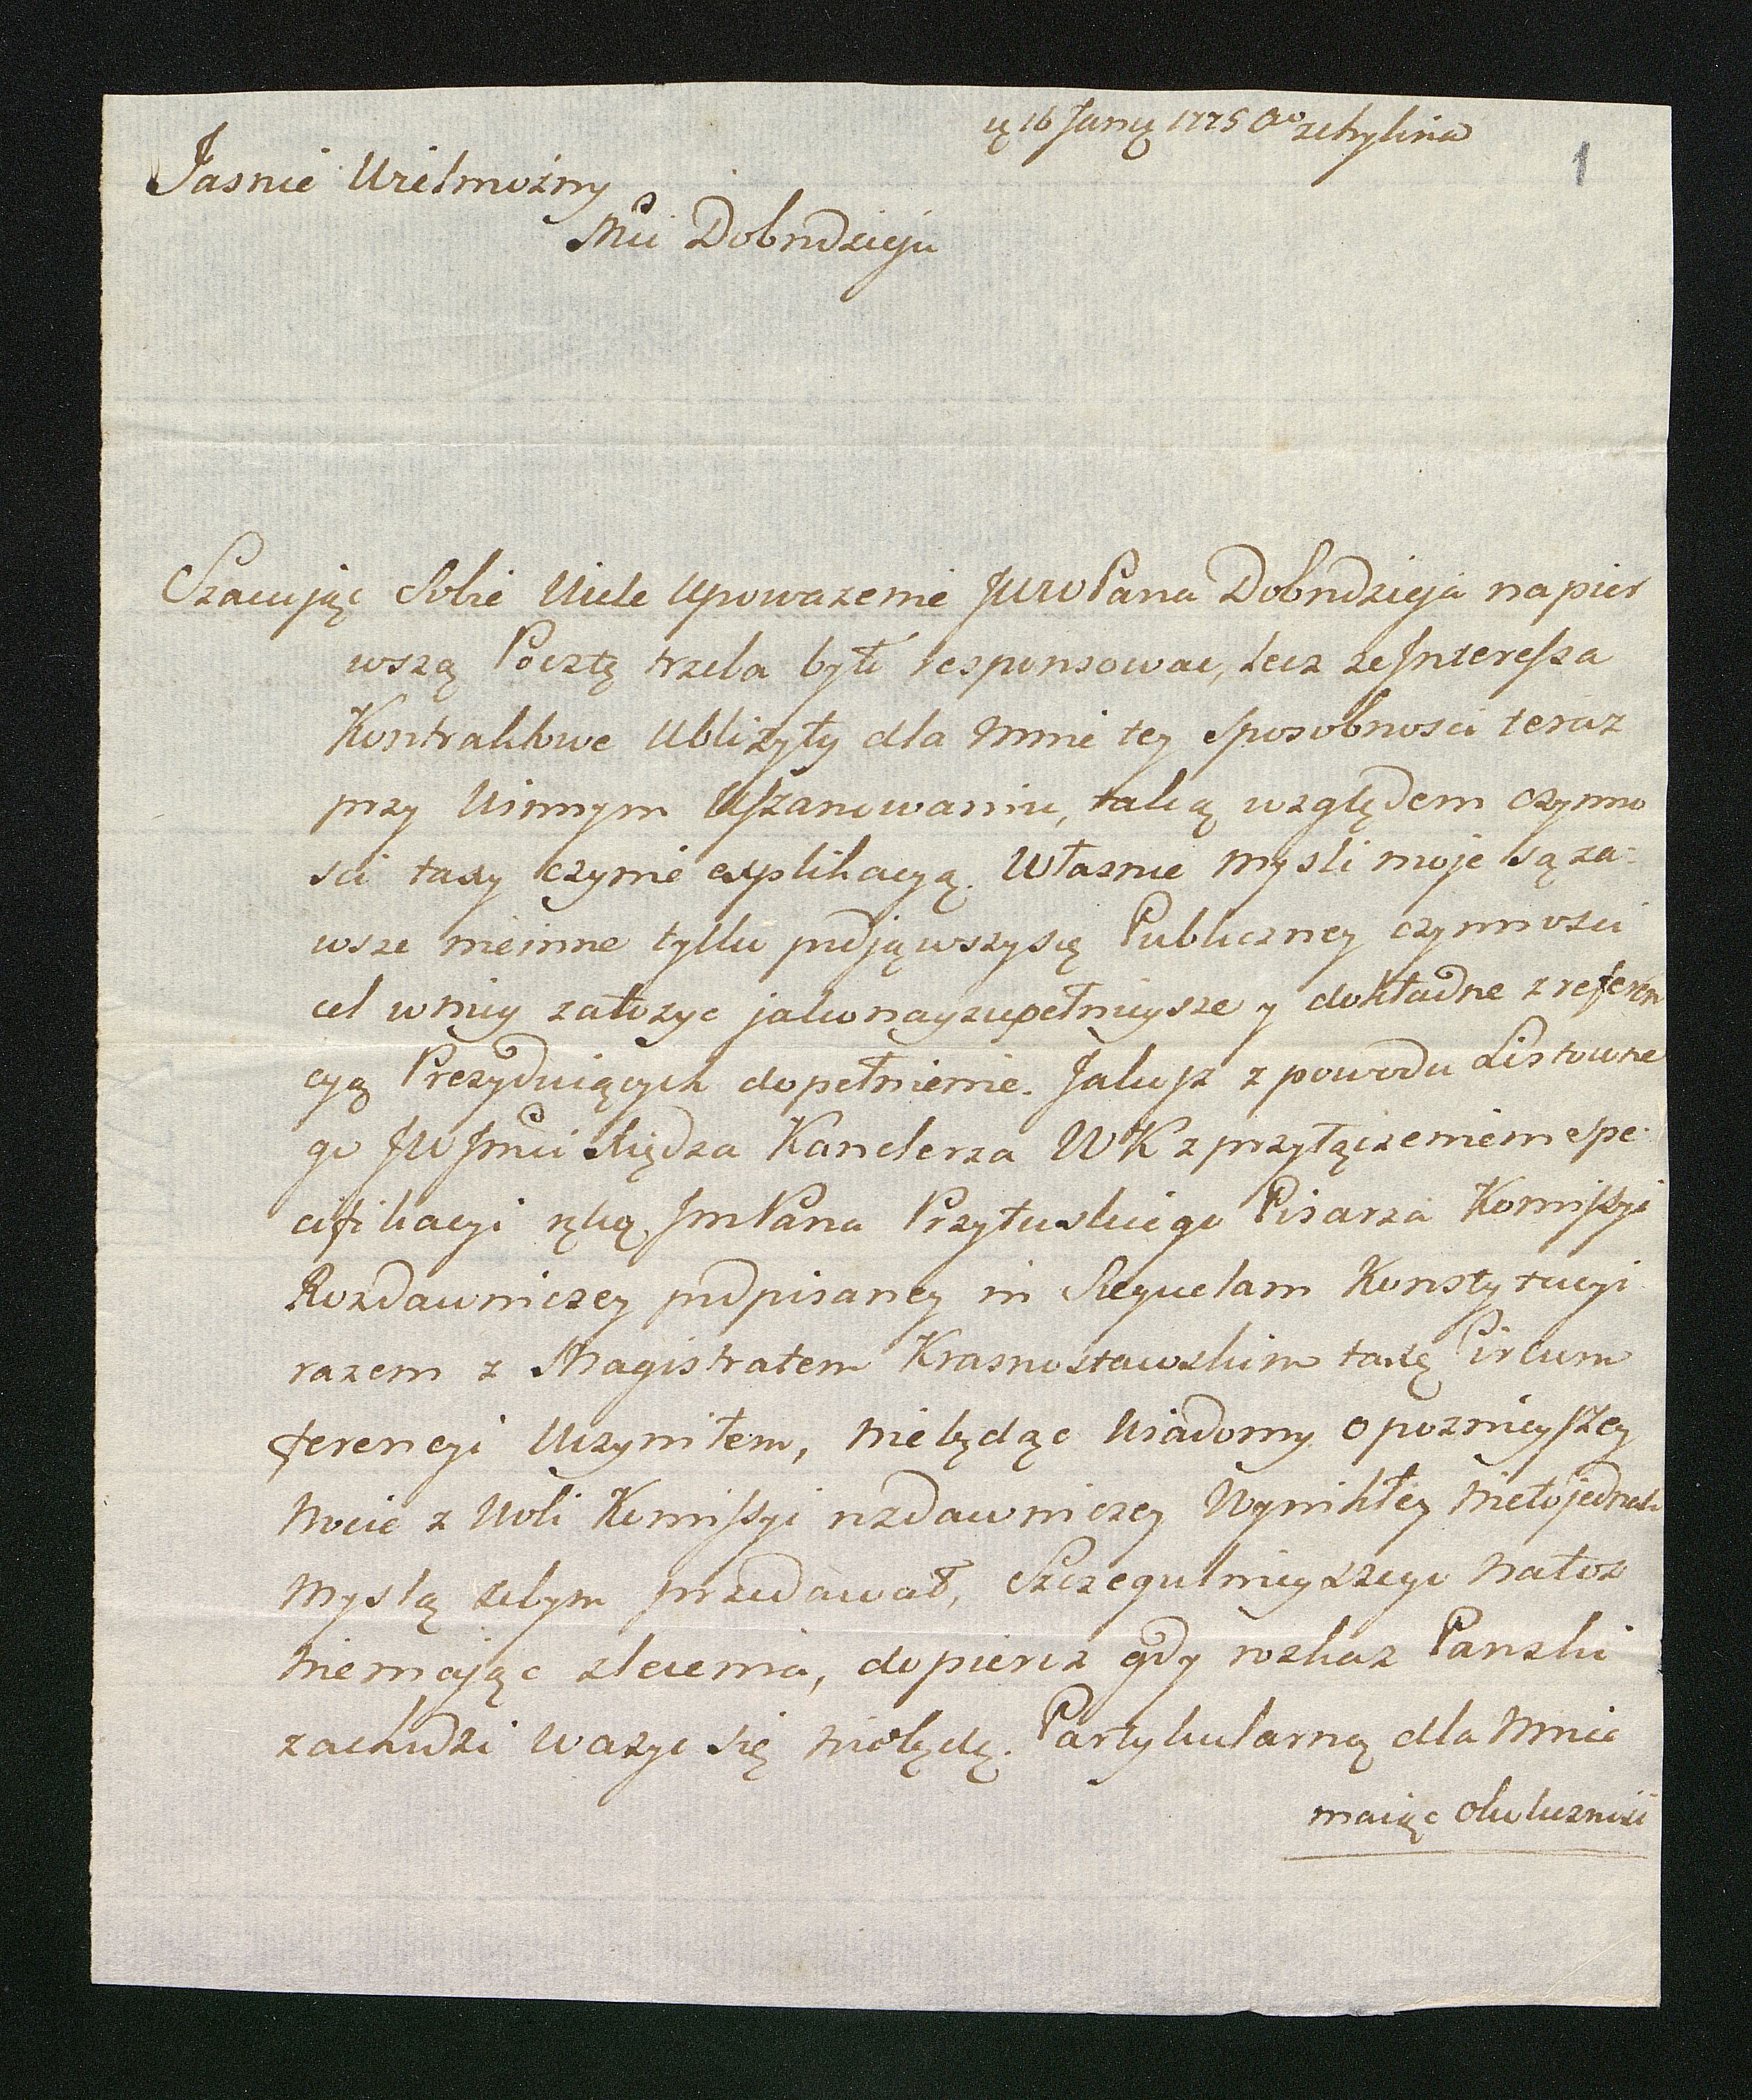 16 Janu 1775 Ao
1
Jasnie Wielmożny
Mci Dobrodzieju
Szacując Sobie Wiele Upowazenie JWW Pana Dobrodzieja na pier
wszą Pocztę trzeba było responsowac, lecz ze Interessa
Kontraktowe Ubliżyły dla mnie tey sposobnosci teraz
przy Winnym Uszanowaniu, taką względem czynno
sci taxy czynię explikacyą. Własnie mysli moje są za-
wsze nieinne tylko podjąwszy się Publiczney czynnosci
cel wniey załozyc jako nayzupełnieysze y dokładne z referen
cyą Prezyduiących dopełnienie. Jakosz z powodu Listowne
go JW Jmci Xiędza Kanclerza WK z przyłączeniem spe-
cifikacyi ręką Jm Pana Przyłuskiego Pisarza Komissyi
Rozdawniczey podpisaney in Sequelam Konstytucyi
razem z Magistratem Krasnostawskim taxę Circum
ferencyi Uczyniłem, niebędąc Wiadomy o poznieyszey
Nocie z Woli Komissyi rozdawniczey Wynikłey nieto jednak
Myslą zebym przedawał, Szczegulnieyszego natosz
niemając zlecenia, dopierosz gdy rozkaz Panski
zachodzi wazyc się niebędę. Partykularną dla mnie
maiąc okolicznosc